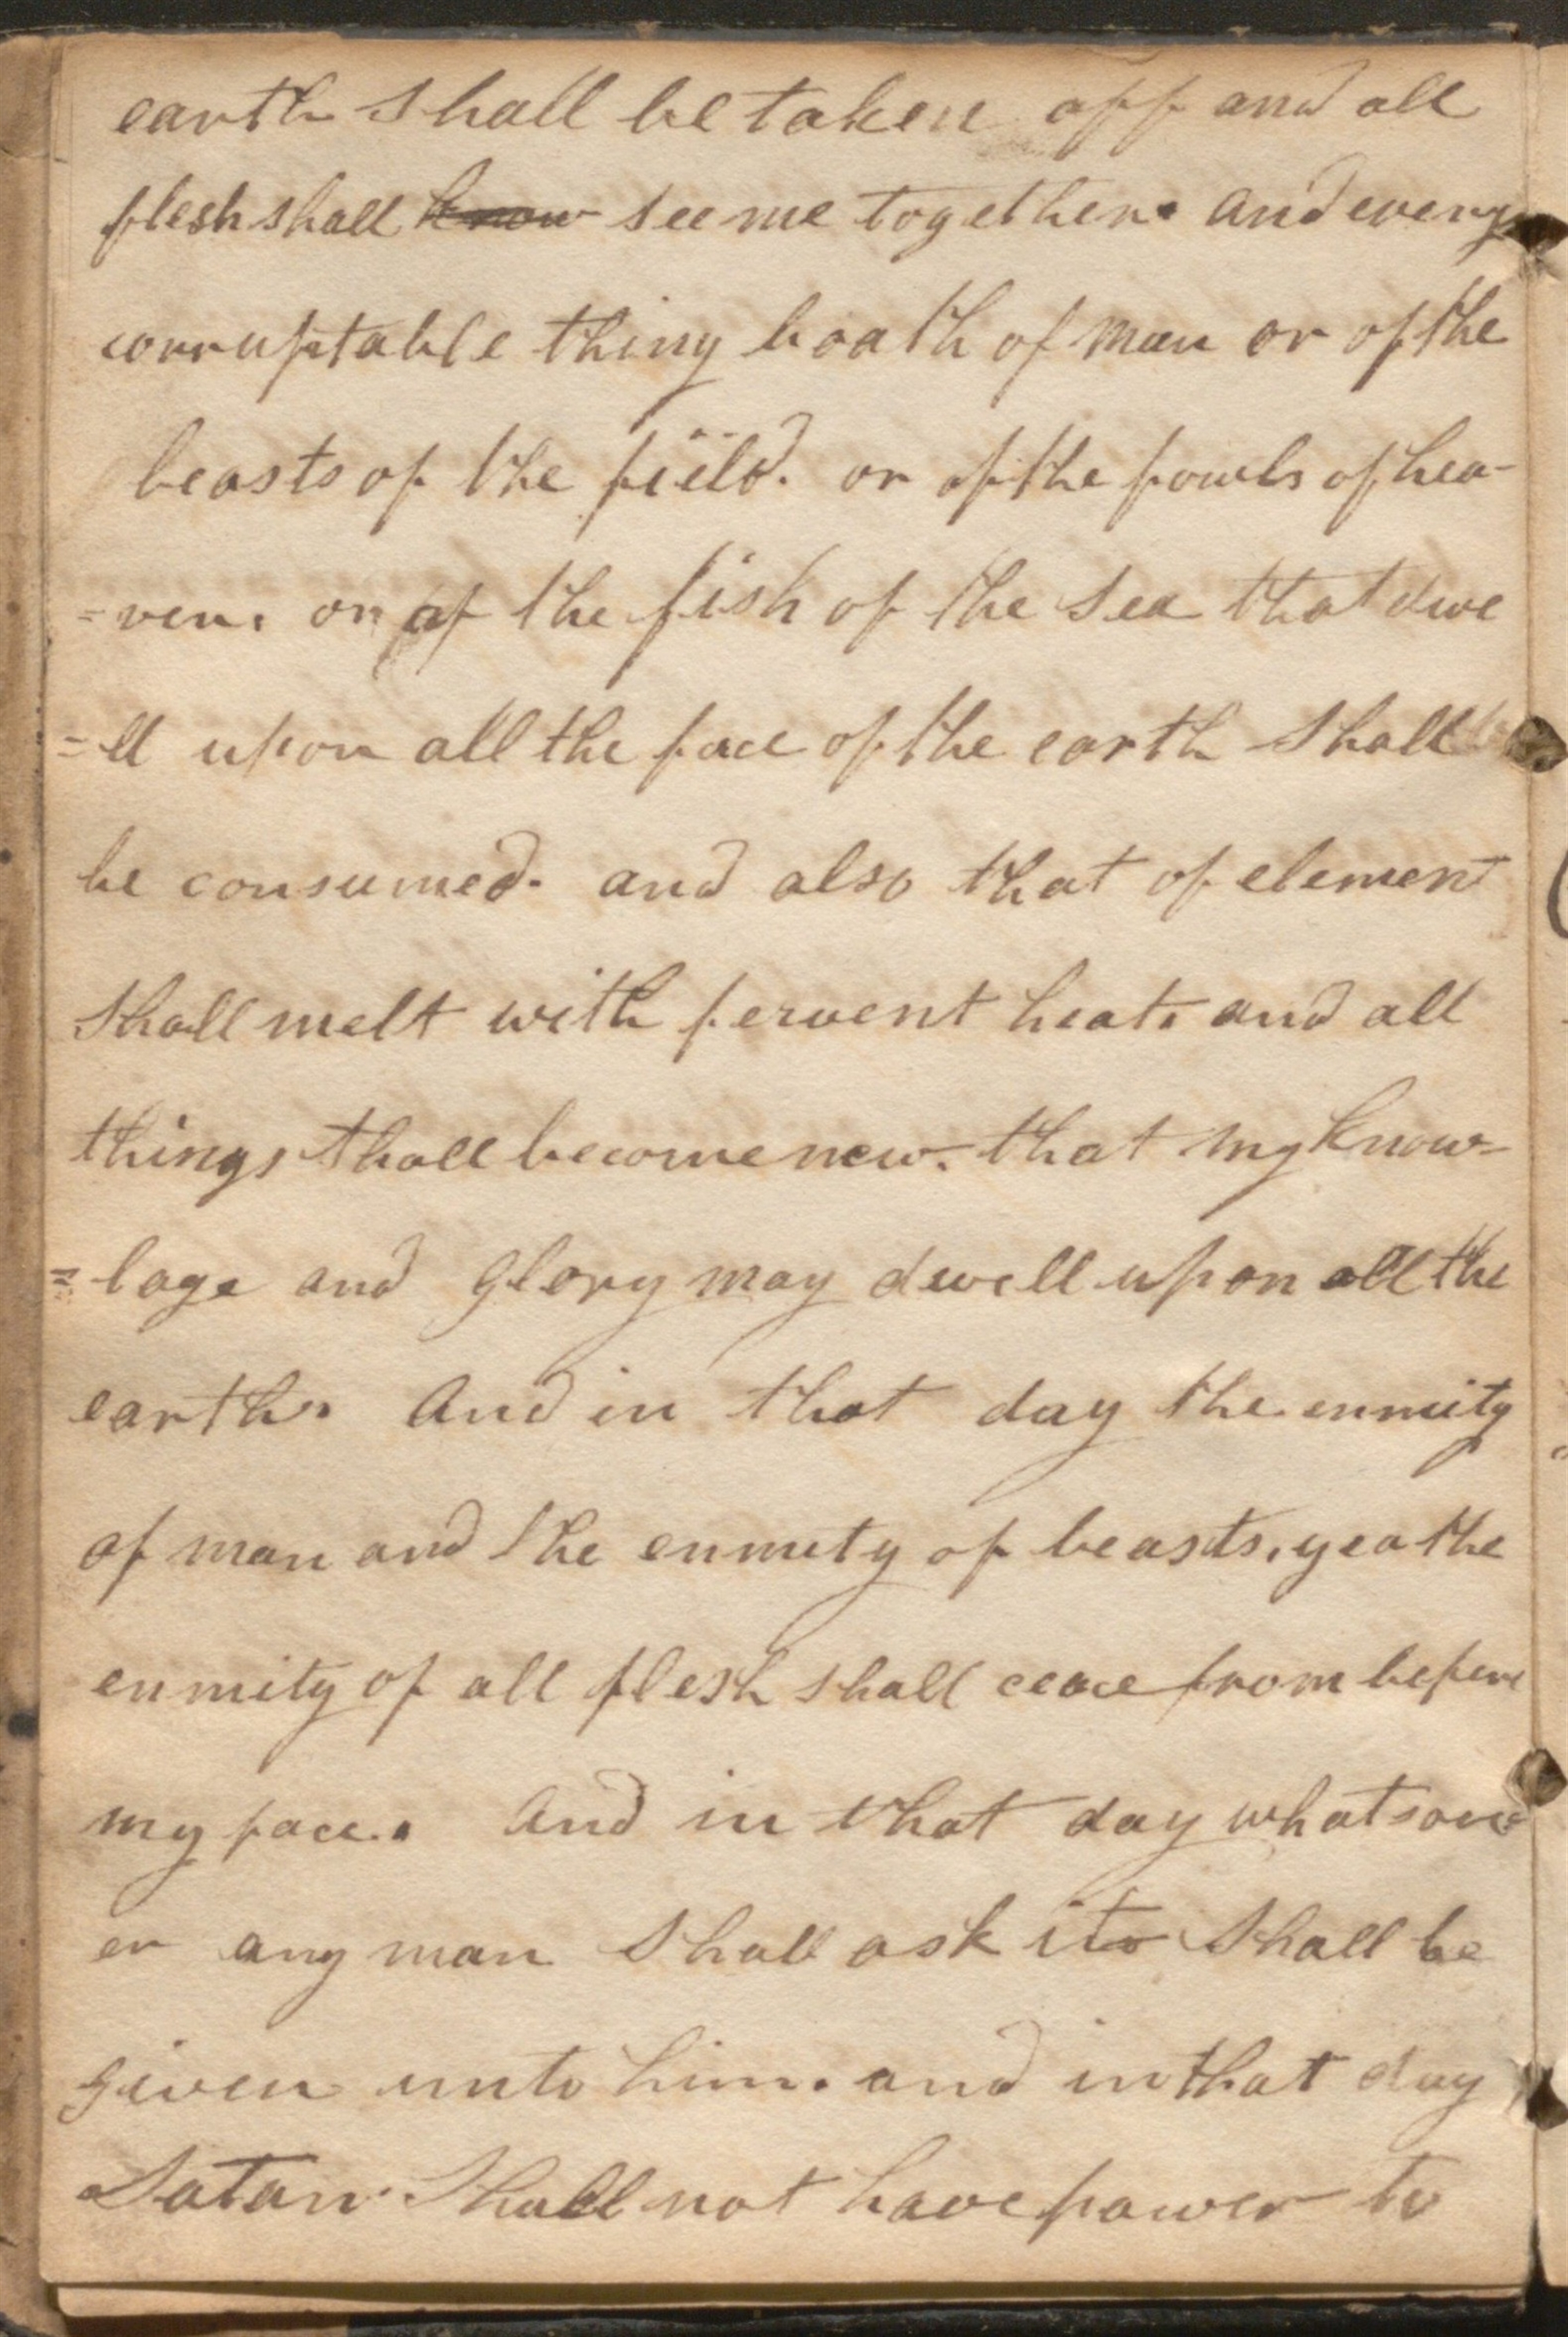 earth shall be taken off and all
flesh shall know see me together. and every
corruptable thing boath of man or of the
beasts of the field. or of the fowls of hea-
=ven. or of the fish of the sea that dwe
=ll upon all the face of the earth shall
be consumed. and also that of element
shall melt with fervent heat. and all
things shall become new. that my know-
=lage and glory may dwell upon all the
earth. And in that day the enmity
of man and the enmity of beasts. yea the
enmity of all flesh shall ceace from before
my face. And in that day whatsoev
er any man shall ask it shall be
given unto him. and in that day
Satan shall not have power to